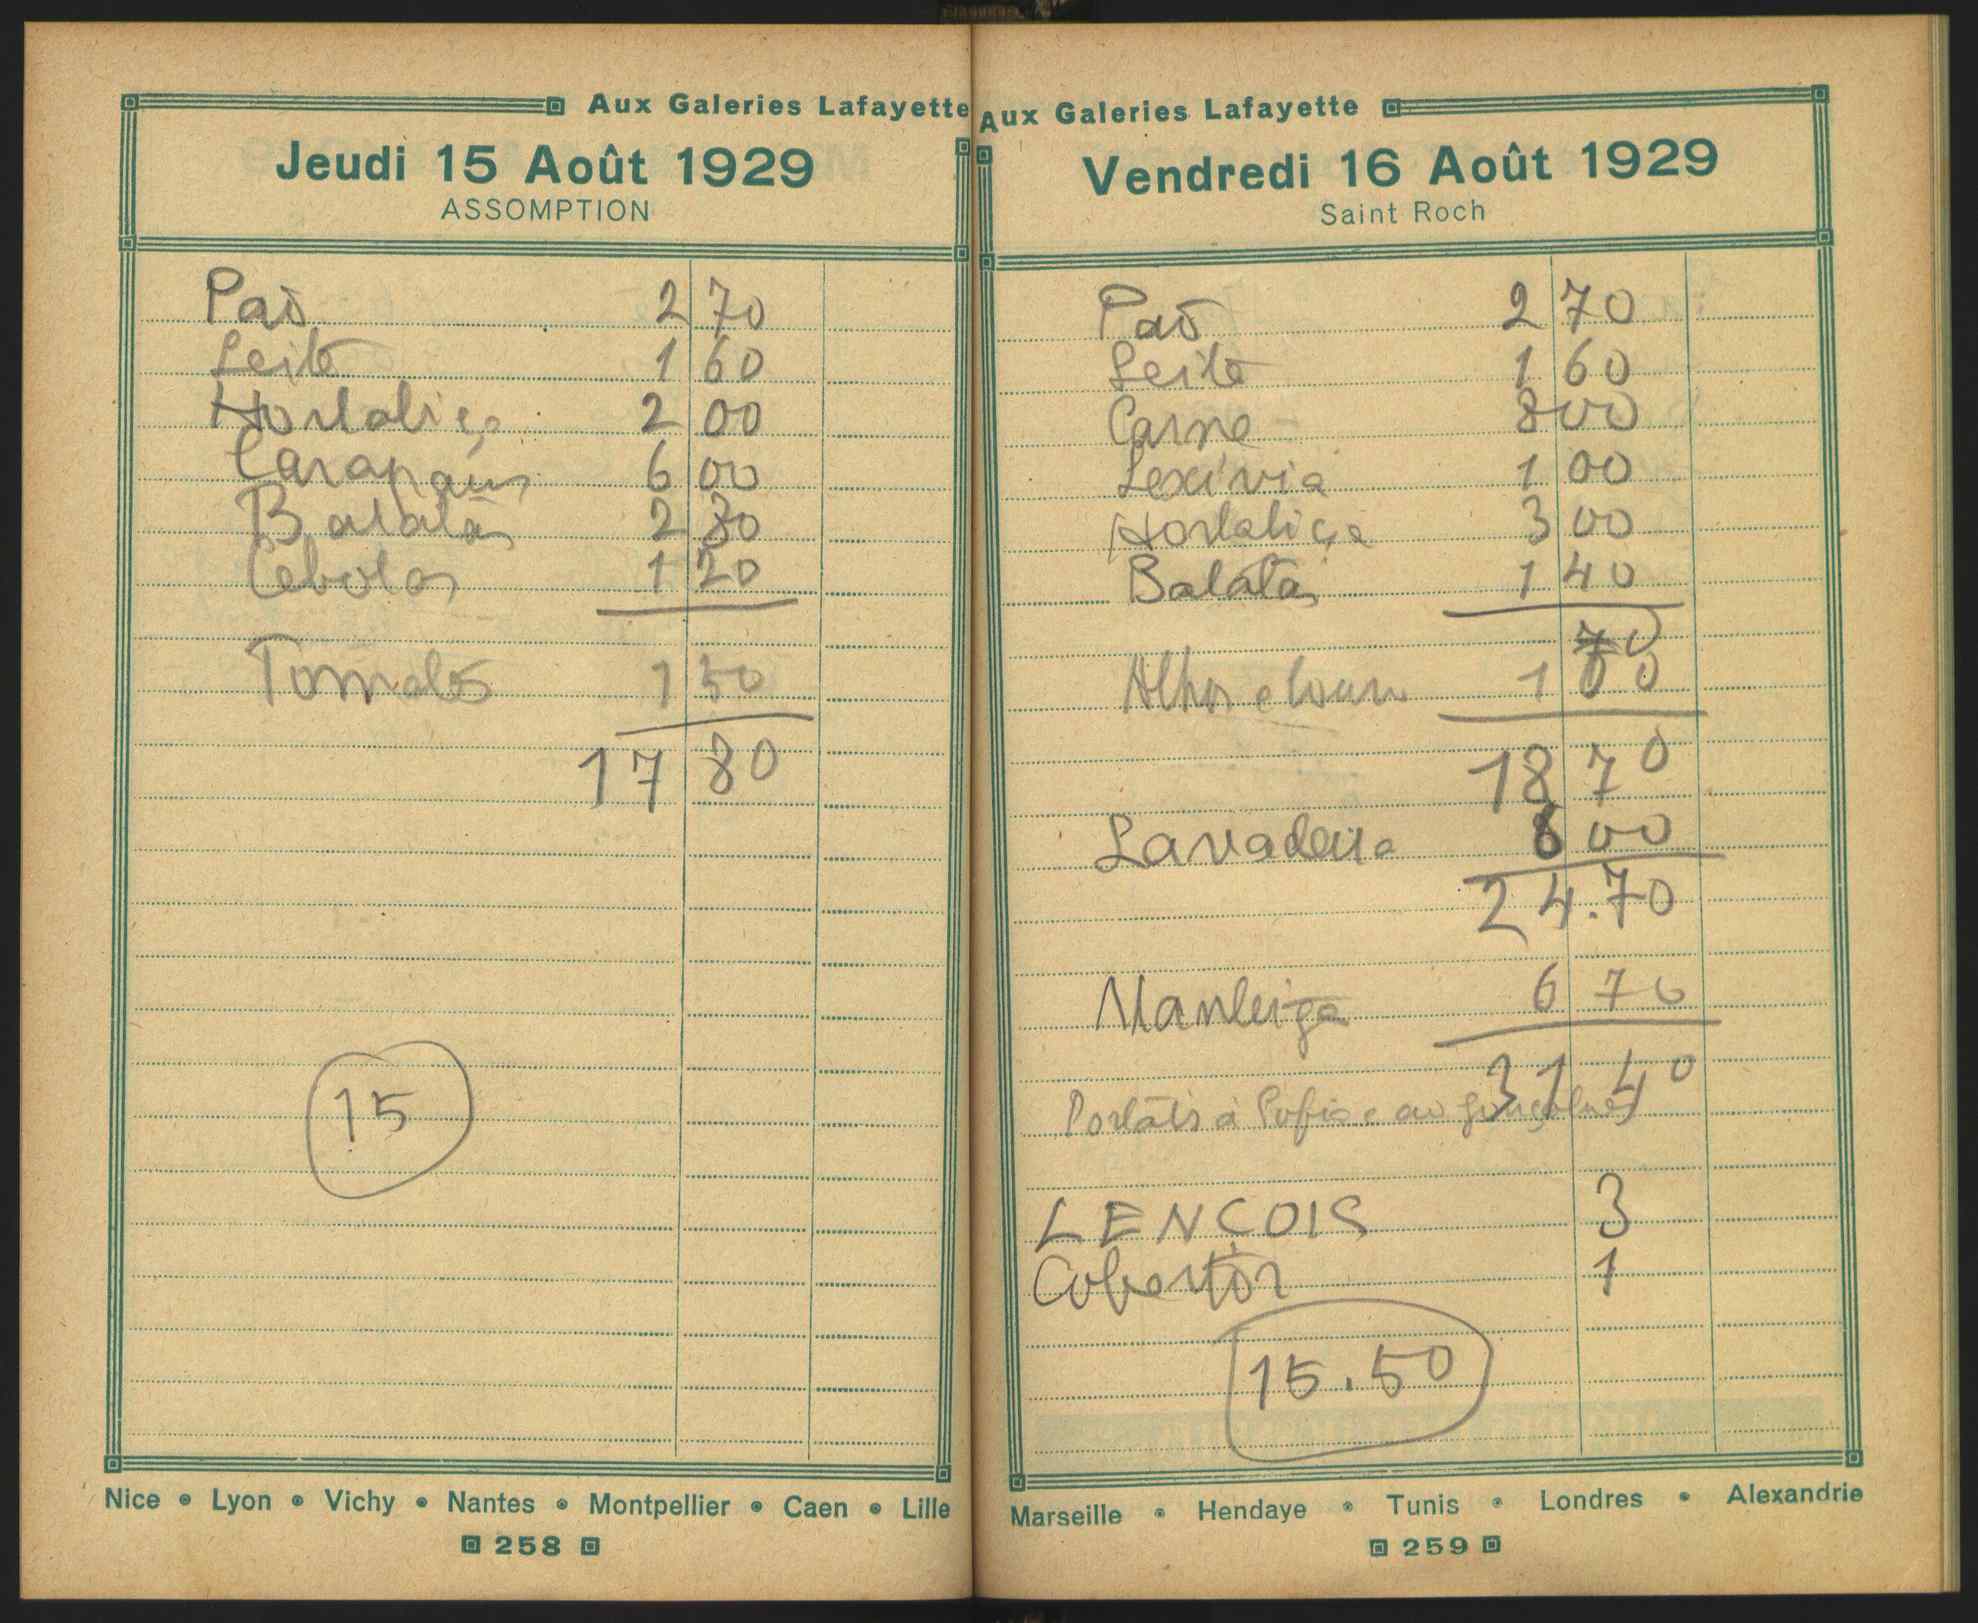 Aux Galeries Lafayette
Jeudi 15 Août 1929
ASSOMPTION
Paõ 2 70
Leite 1 60
Hortaliça 2 00
Carapaus 6 00
Batatas 2 80
Cebolas 1 20
Tomates 1 50
17 80
15
Nice • Lyon • Vichy • Nantes • Montpellier • Caen • Lille
258
Aux Galeries Lafayette
Vendredi 16 Août 1929
Saint Roch
Paõ 2 70
Leite 1 60
Carne 8 00
Lexívia 1 00
Hortaliça 3 00
Batatas 1 40
70
Alhos e louro 1 00
18 70
Lavadeira 6 00
24.70
Manteiga 6 70
31 40
à e ao Gonçalves
LENÇOIS 3
Cobertor 1
15.50
Marseille • Hendaye • Tunis • Londres • Alexandrie
259